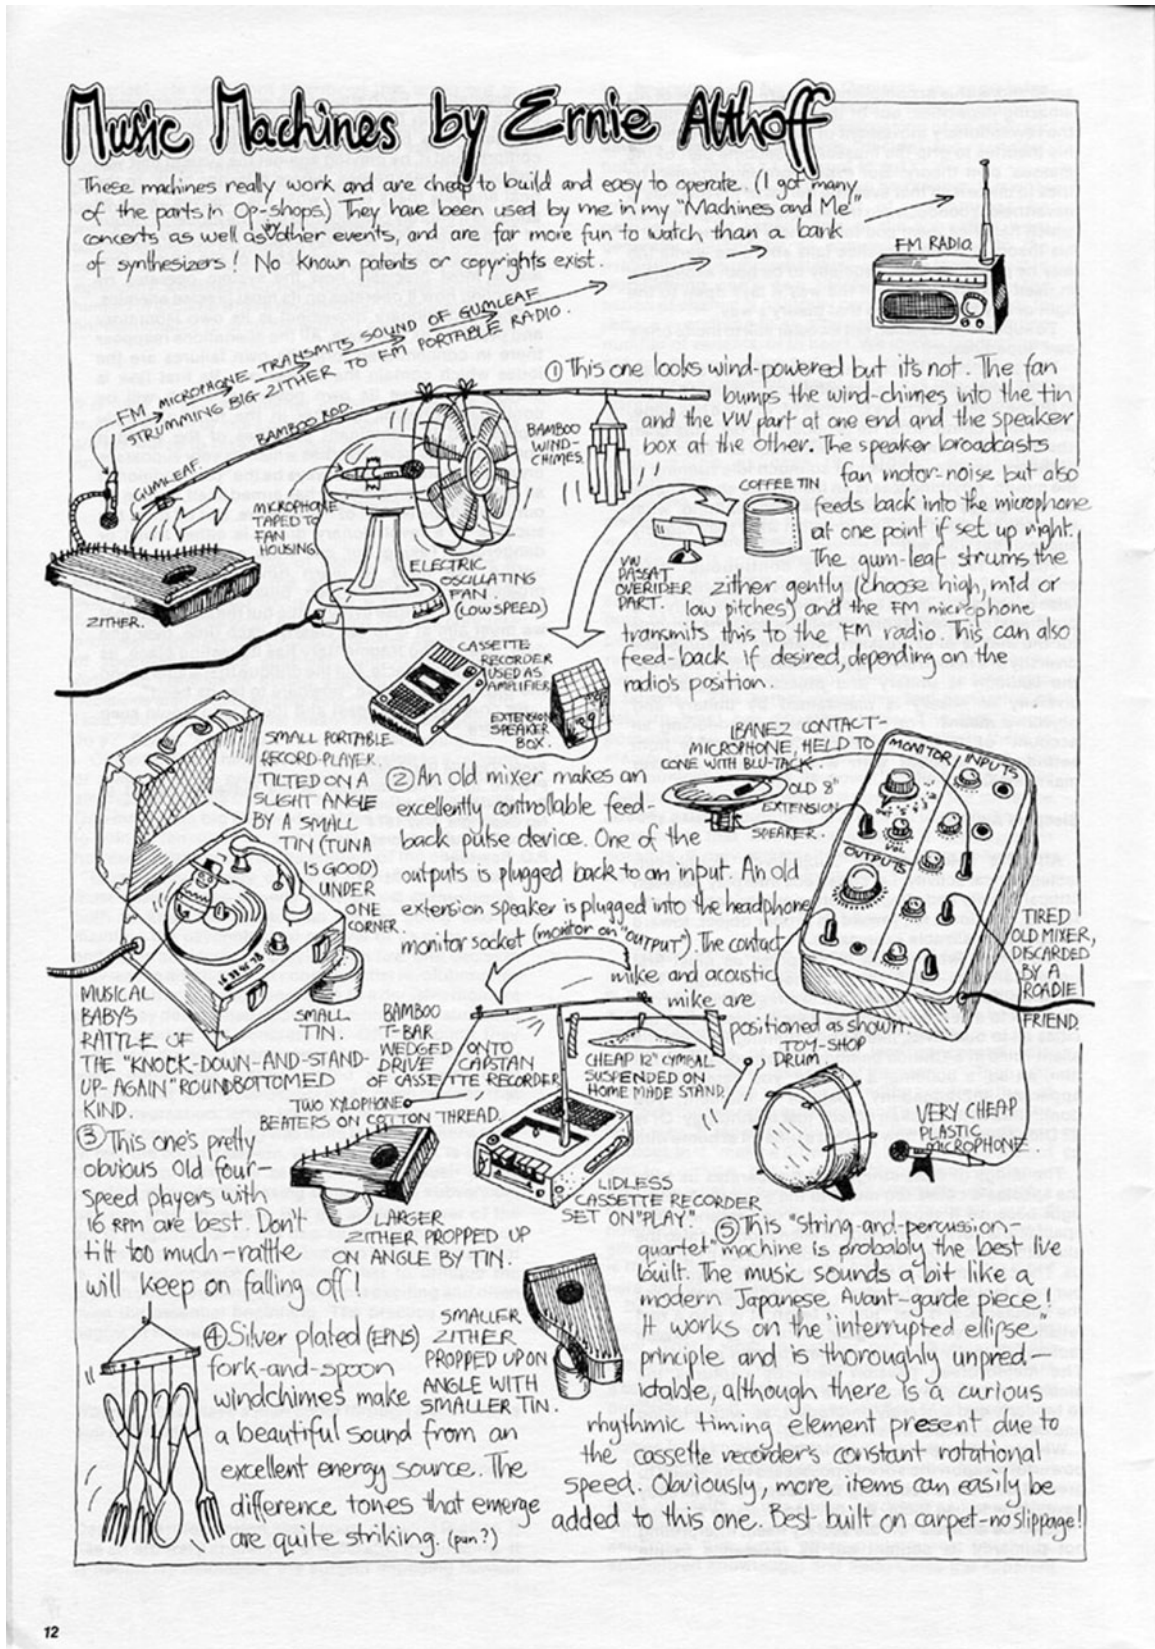 Music Machines by Ernie Althoff
These machines really work and are cheap to build and easy to operate. (I got many
of the parts in Op-shops.) They have been used by me in my "Machines and Me"
concerts as well as other events, and are far more fun to watch than a bank
of synthesizers! No known patents or copyrights exist.
FM RADIO.
FM MICROPHONE TRANSMITS SOUND OF GUMLEAF
STRUMMING BIG ZITHER TO FM PORTABLE RADIO.
BAMBOO ROD.
GUMLEAF.
MICROPHONE
TAPED TO
FAN
HOUSING
ZITHER.
ELECTRIC
OSCILLATING
FAN.
(LOW SPEED)
BAMBOO
WIND-
CHIMES.
COFFEE TIN
VW
PASSAT
OVERIDER
PART.
CASSETTE
RECORDER
USED AS
AMPLIFIER
EXTENSION
SPEAKER
BOX.
① This one looks wind-powered but it's not. The fan
bumps the wind-chimes into the tin
and the VW part at one end and the speaker
box at the other. The speaker broadcasts
fan motor-noise but also
feeds back into the microphone
at one point if set up right.
The gum-leaf strums the
zither gently (choose high, mid or
low pitches) and the FM microphone
transmits this to the FM radio. This can also
feed-back if desired, depending on the
radio's position.
SMALL PORTABLE
RECORD-PLAYER.
TILTED ON A
SLIGHT ANGLE
BY A SMALL
TIN (TUNA
IS GOOD)
UNDER
ONE
CORNER.
16 33 45 78
SMALL
TIN.
MUSICAL
BABY'S
RATTLE OF
THE "KNOCK-DOWN-AND-STAND-
UP-AGAIN" ROUNDBOTTOMED
KIND.
② An old mixer makes an
excellently controllable feed-
back pulse device. One of the
outputs is plugged back to an input. An old
extension speaker is plugged into the headphone
monitor socket (monitor on "OUTPUT"). The contact
mike and acoustic
mike are
positioned as shown.
IBANEZ CONTACT-
MICROPHONE, HELD TO
CONE WITH BLU-TACK.
OLD 8"
EXTENSION
SPEAKER.
MONITOR
INPUTS
VOL
OUTPUTS
TIRED
OLD MIXER,
DISCARDED
BY A
ROADIE
FRIEND.
TOY-SHOP
DRUM
VERY CHEAP
PLASTIC
MICROPHONE.
BAMBOO
T-BAR
WEDGED ONTO
DRIVE CAPSTAN
OF CASSETTE RECORDER
TWO XYLOPHONE
BEATERS ON COTTON THREAD.
CHEAP 12" CYMBAL
SUSPENDED ON
HOME MADE STAND.
LIDLESS
CASSETTE RECORDER
SET ON "PLAY."
LARGER
ZITHER PROPPED UP
ON ANGLE BY TIN.
③ This one's pretty
obvious. Old four-
speed players with
16 RPM are best. Don't
tilt too much-rattle
will keep on falling off!
④ Silver plated (EPNS)
fork-and-spoon
windchimes make
a beautiful sound from an
excellent energy source. The
difference tones that emerge
are quite striking. (pun?)
SMALLER
ZITHER
PROPPED UP ON
ANGLE WITH
SMALLER TIN.
⑤ This "string-and-percussion-
quartet" machine is probably the best I've
built. The music sounds a bit like a
modern Japanese Avant-garde piece!
It works on the "interrupted ellipse"
principle and is thoroughly unpred-
ictable, although there is a curious
rhythmic timing element present due to
the cassette recorder's constant rotational
speed. Obviously, more items can easily be
added to this one. Best built on carpet-no slippage!
12